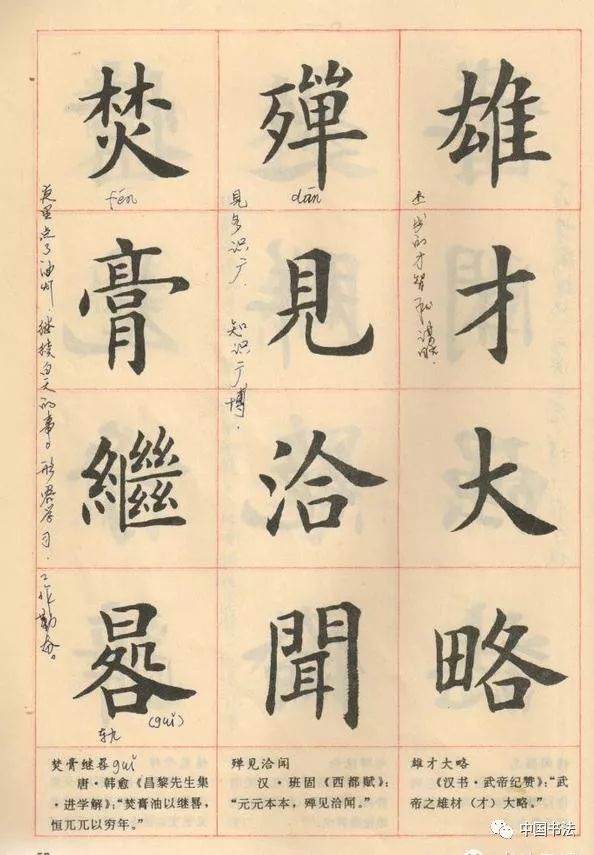 雄才大略
杰出的才智和谋略.
殫見洽聞
dān
见多识广. 知识广博.
焚膏繼晷
fén
夜里点了油灯.继续白天的事。形容学习.工作勤奋。
轨 (guǐ)
雄才大略
《汉书·武帝纪赞》:“武
帝之雄材（才）大略。”
殚见洽闻
汉·班固《西都赋》:
“元元本本，殚见洽闻。”
焚膏继晷 guǐ
唐·韩愈《昌黎先生集
·进学解》:“焚膏油以继晷，
恒兀兀以穷年。”
中国书法